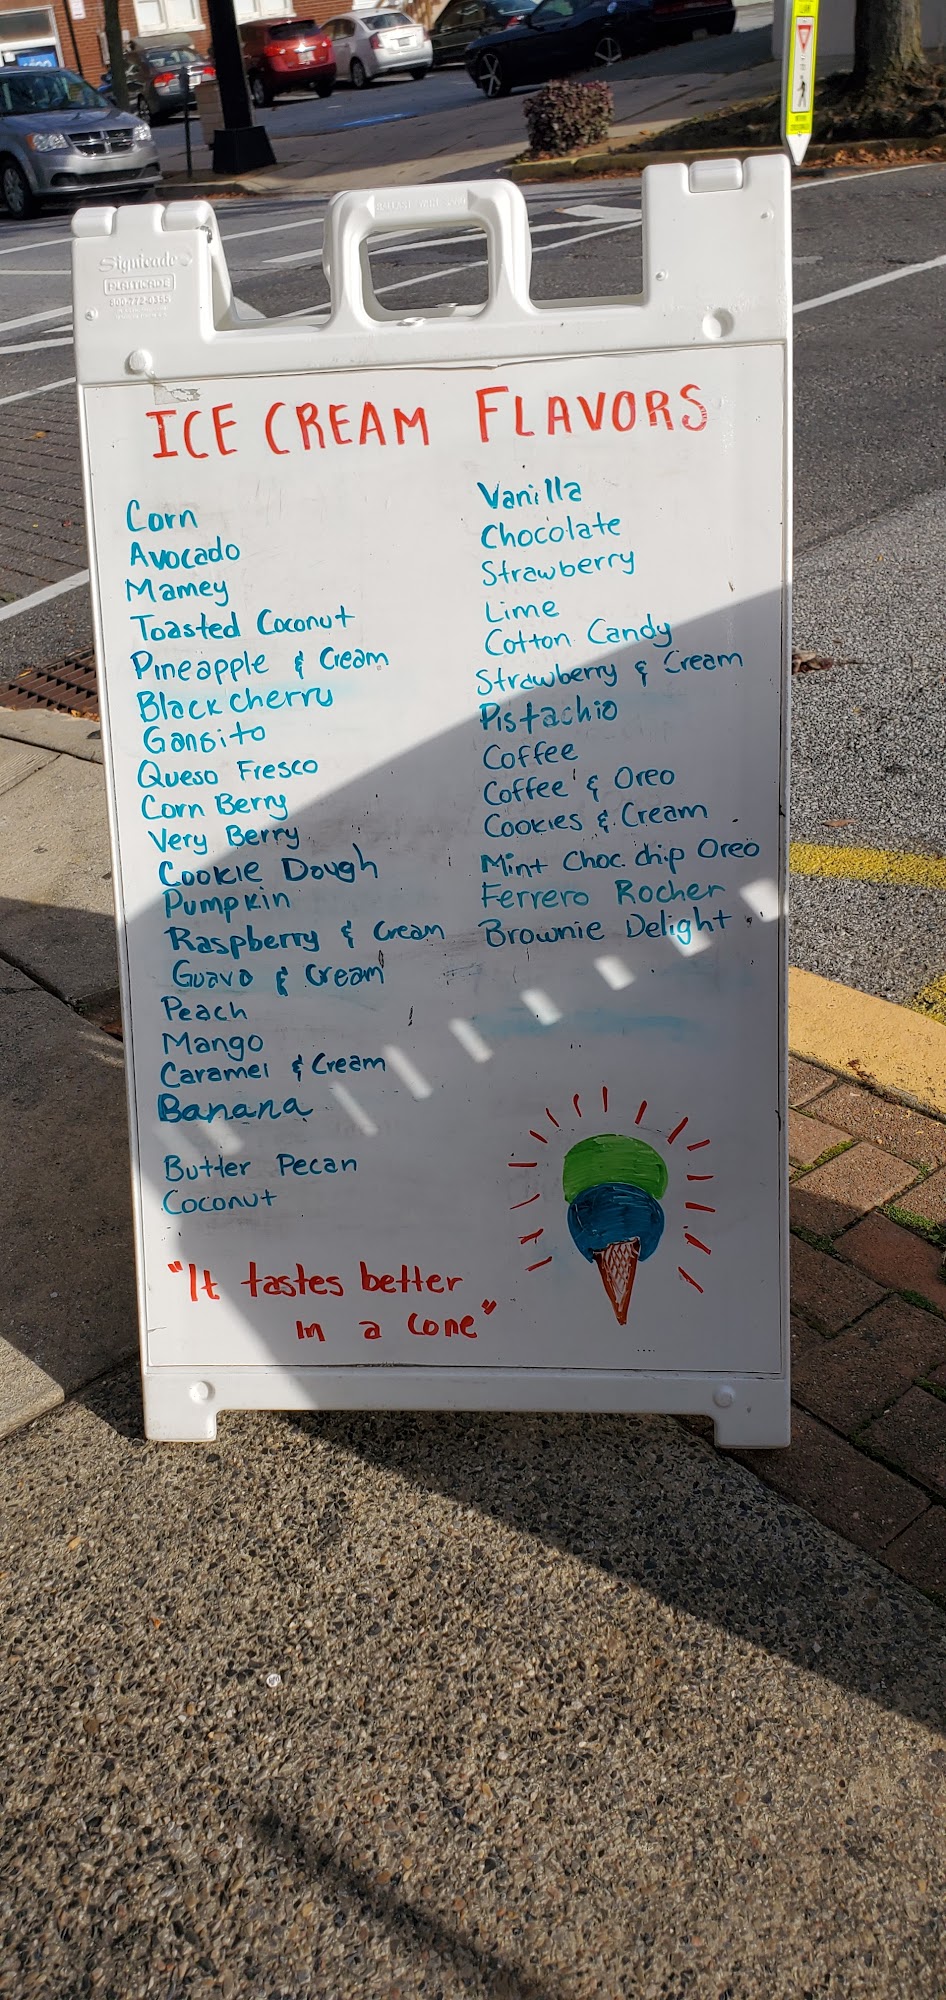 Signicade
PLASTICADE
800-772-0355
ICE CREAM FLAVORS
Corn
Avocado
Mamey
Toasted Coconut
Pineapple & Cream
Black cherry
Gansito
Queso Fresco
Corn Berry
Very Berry
Cookie Dough
Pumpkin
Raspberry & Cream
Guava & Cream
Peach
Mango
Caramel & Cream
Banana
Butter Pecan
Coconut
Vanilla
Chocolate
Strawberry
Lime
Cotton Candy
Strawberry & Cream
Pistachio
Coffee
Coffee & Oreo
Cookies & Cream
Mint Choc. chip Oreo
Ferrero Rocher
Brownie Delight
"It tastes better
in a cone"